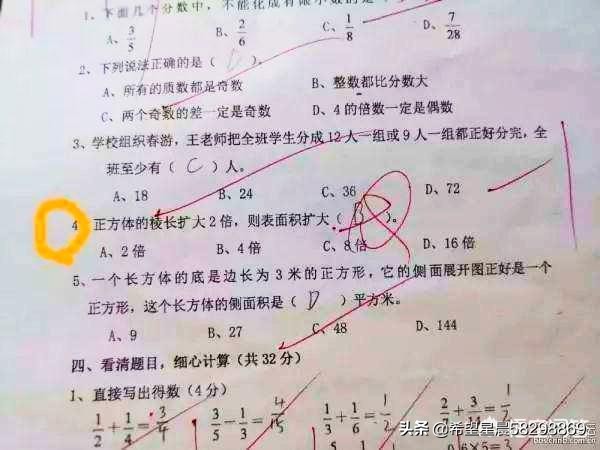 1、下面几个分数中，不能化成有限小数的是
A、3/5 B、2/6 C、1/8 D、7/28
2、下列说法正确的是（ D ）。
A、所有的质数都是奇数 B、整数都比分数大
C、两个奇数的差一定是奇数 D、4的倍数一定是偶数
3、学校组织春游，王老师把全班学生分成12人一组或9人一组都正好分完，全
班至少有（ C ）人。
A、18 B、24 C、36 D、72
4、正方体的棱长扩大2倍，则表面积扩大（ B ）。
A、2倍 B、4倍 C、8倍 D、16倍
5、一个长方体的底是边长为3米的正方形，它的侧面展开图正好是一个
正方形，这个长方体的侧面积是（ D ）平方米。
A、9 B、27 C、48 D、144
四、看清题目，细心计算（共32分）
1、直接写出得数（4分）
1/2+1/4=3/4 3/5-1/3=4/15 1/3+1/6=1/2
0.6×5=3
头条 @希望星晨58298869